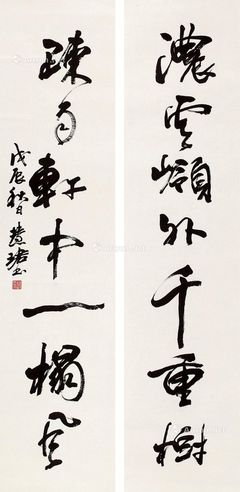 濃雲嶺外千重樹
疎雨軒中一榻風
戊辰秋日